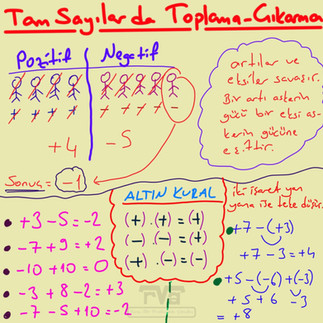 Tam Sayılarda Toplama-Çıkarma
Pozitif Negatif
+ + + + - - - - -
+4 -5
Sonuç = -1
artılar ve
eksiler savaşır.
Bir artı askerin
gücü bir eksi as-
kerin gücüne
eşittir.
+3 - 5 = -2
-7 + 9 = +2
-10 + 10 = 0
-3 + 8 - 2 = +3
-7 - 5 + 10 = -2
ALTIN KURAL
(+) . (+) = (+)
(-) . (-) = (+)
(+) . (-) = (-)
iki işaret yan
yana ise teke düşür
+7 - (+3)
+7 - 3 = +4
+5 - (-6) + (-3)
+5 + 6 - 3
= +8